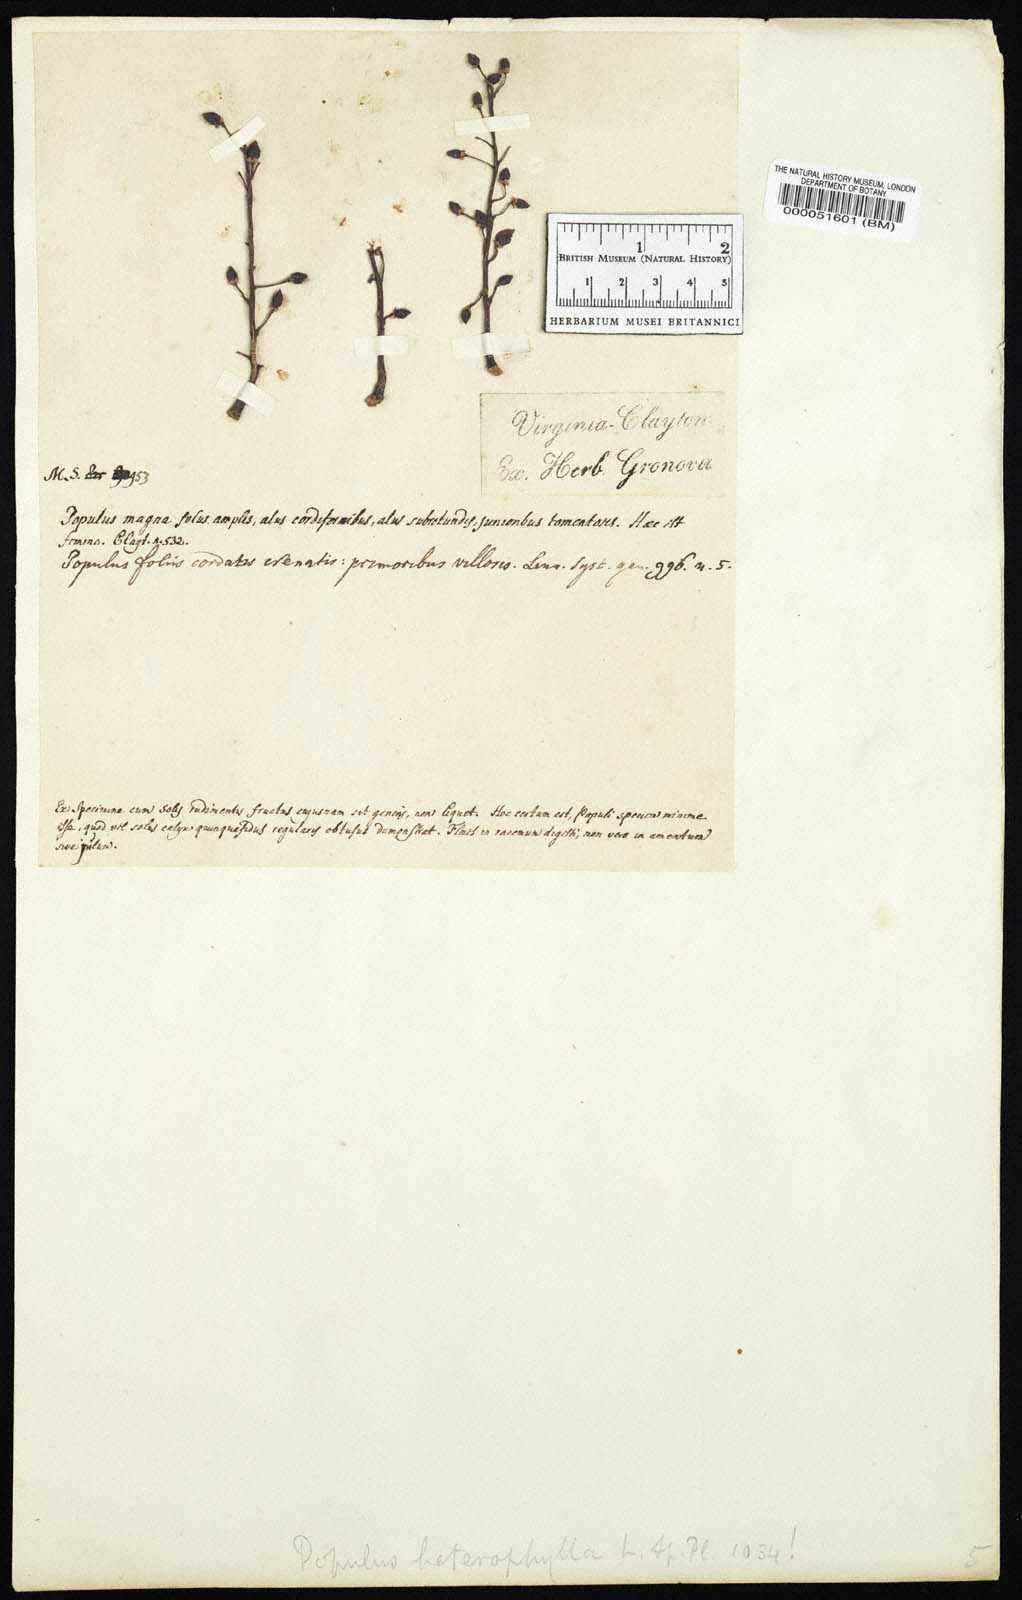 THE NATURAL HISTORY MUSEUM, LONDON
DEPARTMENT OF BOTANY
000051601 (BM)
1 2
BRITISH MUSEUM (NATURAL HISTORY)
1 2 3 4 5
HERBARIUM MUSEI BRITANNICI
Virginia-Clayton
Ex. Herb. Gronovii
M.S. 953
Populus magna foliis amplis, aliis cordiformibus, aliis subrotundis, junioribus tomentosis. Haec est
femina. Clayt. n. 532.
Populus foliis cordatis crenatis: primoribus villosis. Linn. Syst. gen. 996. n. 5.
Ex Specimine cum solis rudimentis fructus cujusnam sit generis, non liquet. Hoc certum est, Populi speciem minime
esse, quod vel solus calyx quinquefidus regularis obtusus demonstrat. Flores in racemum digesti, non vero in amentum
sive julum.
Populus heterophylla L. Sp. Pl. 1034!
5